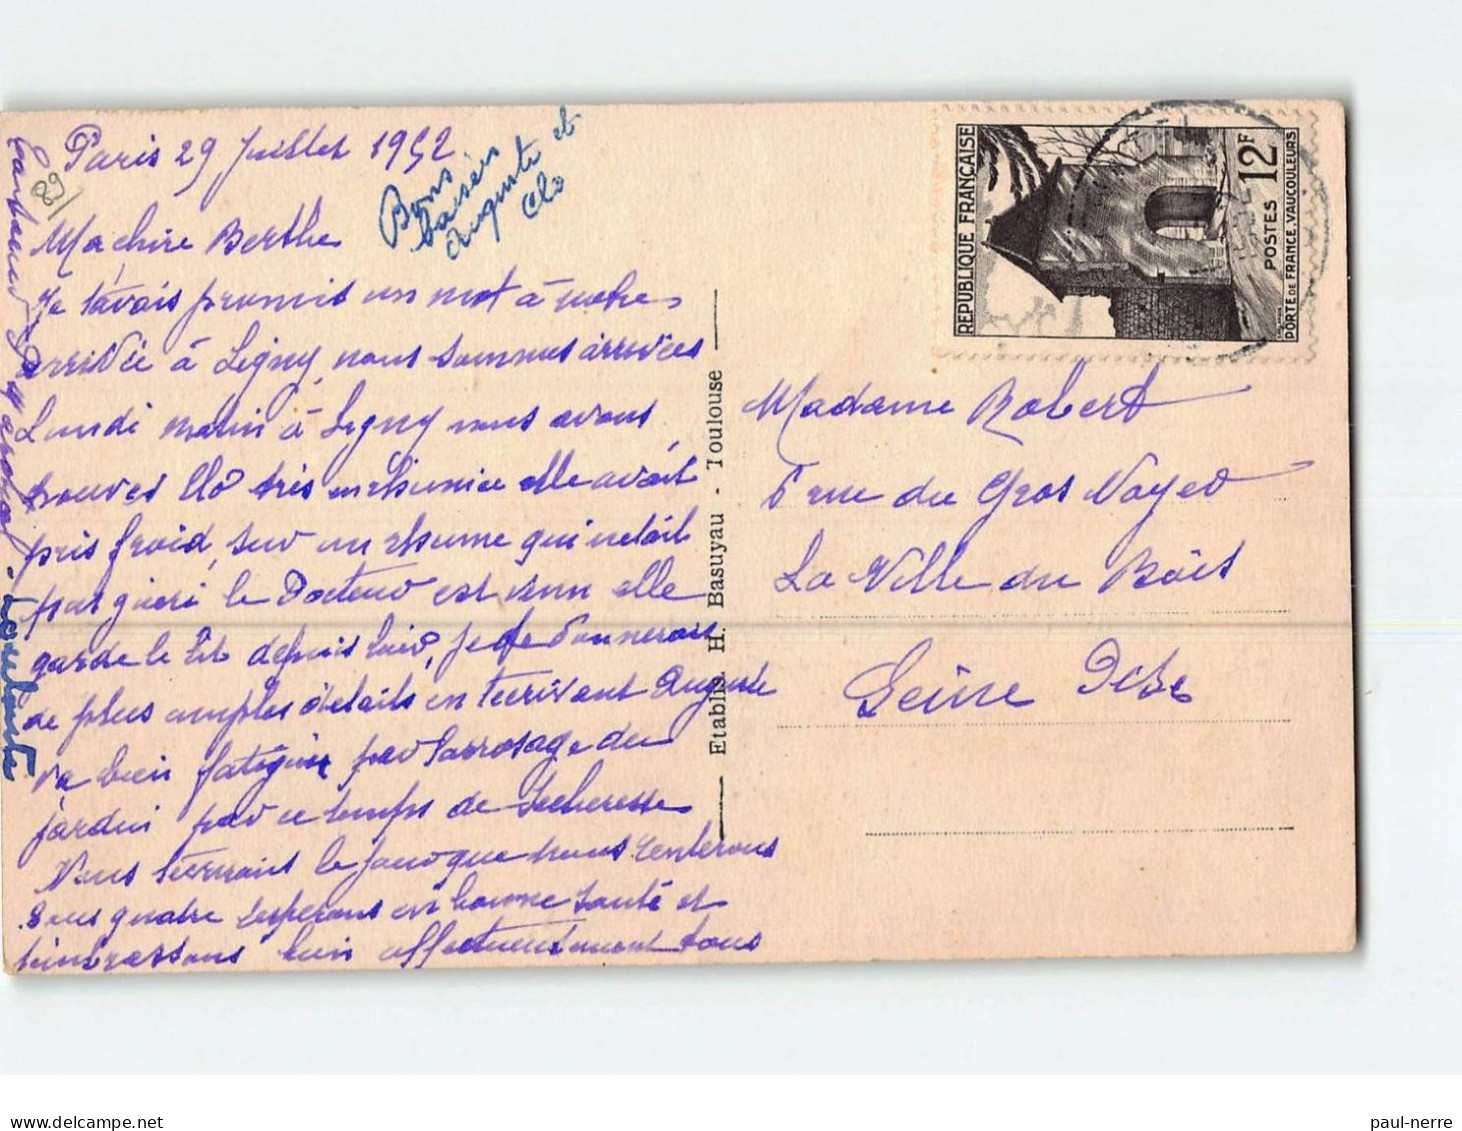 Paris 29 Juillet 1952
89
Bons
baisers
Auguste et
Clo
Ma chire Berthe
Je t'avais promis un mot à notre
arrivée à Ligny, nous sommes arrivées
Lundi matin à Ligny nous avons
trouver Clo très enrhumée elle avait
pris froid, sur un rhume qui netait
pas guéri le Docteur est venu elle
garde le lit depuis hier, je te donnerais
de plus amples détails en t'écrivant Auguste
va bien fatiguée par l'arrosage du
jardin par ce temps de secheresse
Nous terrons le jour que nous rentrerons
Tous quatre t'esperons en bonne santé et
t'embrassons bien affectueusement tous
Etablis. H. Basuyau - Toulouse
REPUBLIQUE FRANÇAISE
12F
POSTES
PORTE DE FRANCE. VAUCOULEURS
Madame Robert
6 rue du Gros Noyer
La Ville du Bois
Seine Oise
paul-nerre